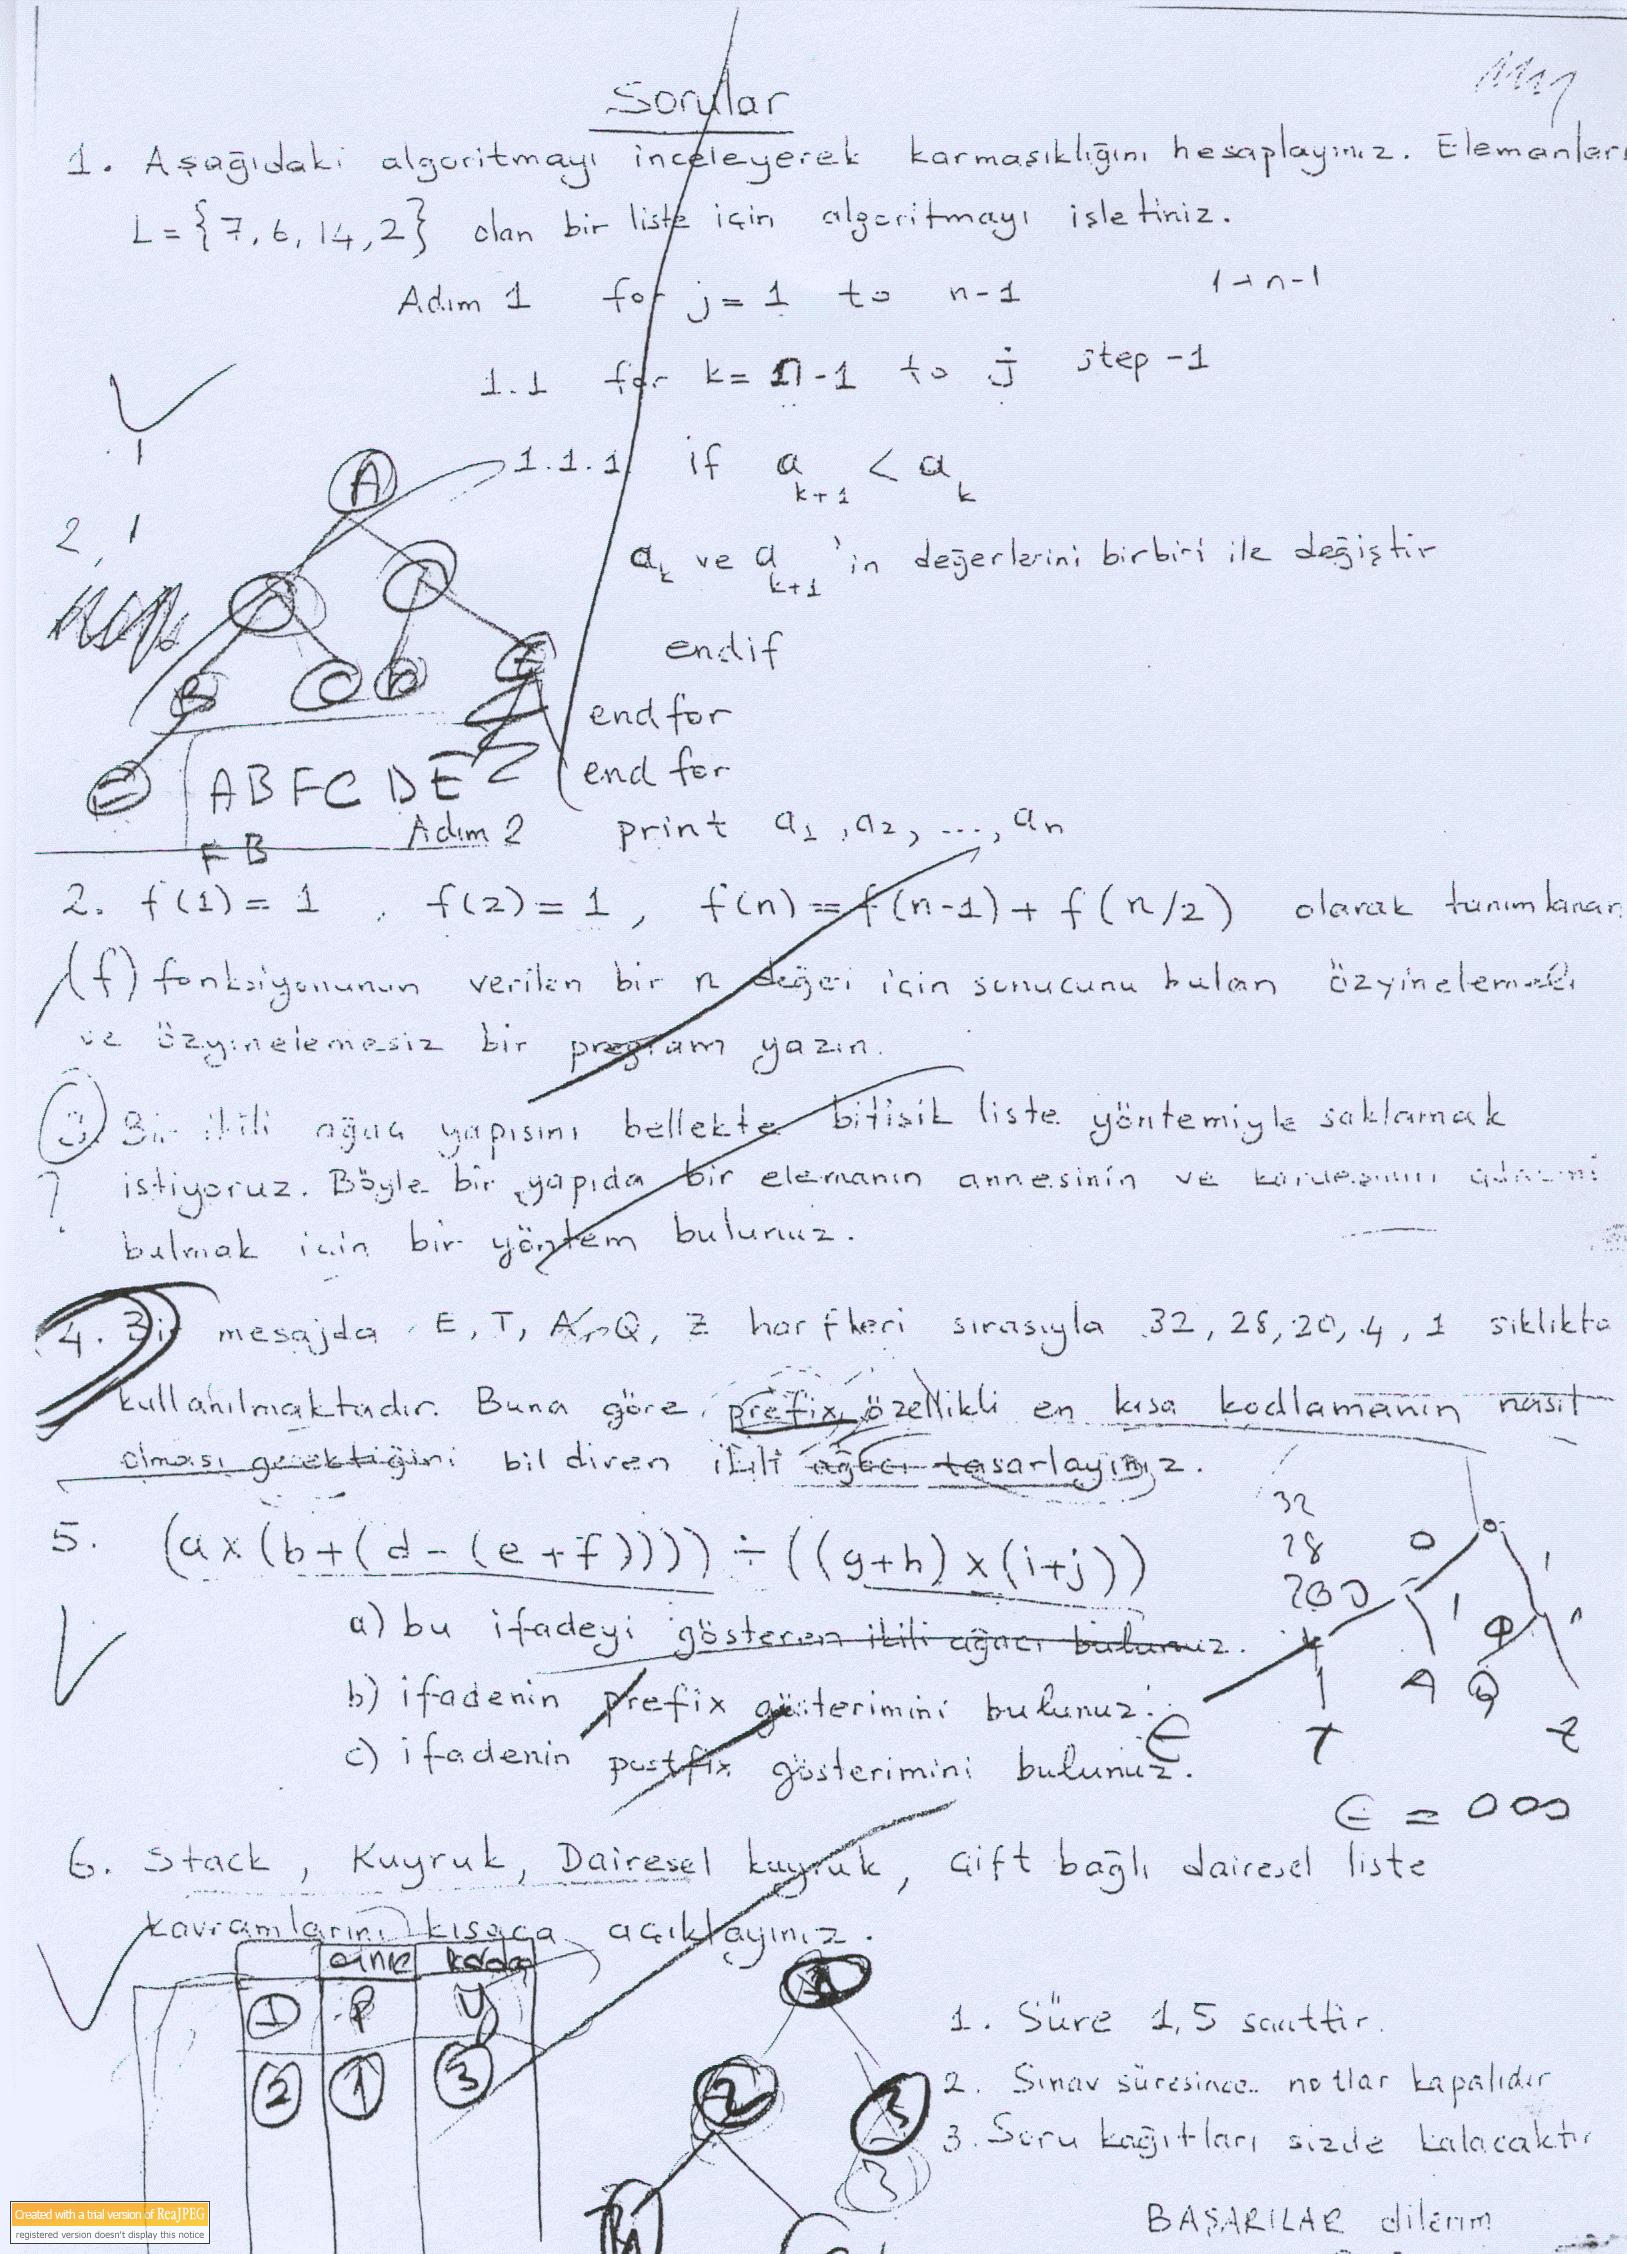 Sorular
1. Aşağıdaki algoritmayı inceleyerek karmaşıklığını hesaplayınız. Elemanları
L = {7, 6, 14, 2} olan bir liste için algoritmayı işletiniz.
Adım 1 for j = 1 to n-1
1→n-1
1.1 for k = n-1 to j step -1
1.1.1 if a k+1 < a k
a k ve a k+1 'in değerlerini birbiri ile değiştir
endif
endfor
end for
A
B C D E
ABFC DE
F B
Adım 2 print a1, a2, ..., an
2. f(1) = 1, f(2) = 1, f(n) = f(n-1) + f(n/2) olarak tanımlanan
(f) fonksiyonunun verilen bir n değeri için sonucunu bulan özyinelemeli
ve özyinelemesiz bir program yazın.
3. Bir ikili ağaç yapısını bellekte bitişik liste yöntemiyle saklamak
istiyoruz. Böyle bir yapıda bir elemanın annesinin ve kardeşinin adresini
bulmak için bir yöntem bulunuz.
4. Bir mesajda E, T, A, Q, Z harfleri sırasıyla 32, 28, 20, 4, 1 sıklıkta
kullanılmaktadır. Buna göre prefix özellikli en kısa kodlamanın nasıl
olması gerektiğini bildiren ikili ağacı tasarlayınız.
5. (a x (b + (d - (e + f)))) ÷ ((g+h) x (i+j))
a) bu ifadeyi gösteren ikili ağacı bulunuz.
b) ifadenin prefix gösterimini bulunuz.
c) ifadenin postfix gösterimini bulunuz.
32
28
0 1
1
A Q
E T Z
E = 000
6. Stack, Kuyruk, Dairesel kuyruk, çift bağlı dairesel liste
kavramlarını kısaca açıklayınız.
anne
1
2 1 3
2 3
3
1. Süre 1,5 saattir.
2. Sınav süresince notlar kapalıdır
3. Soru kağıtları sizde kalacaktır
BAŞARILAR dilerim
Created with a trial version of ReaJPEG
registered version doesn't display this notice